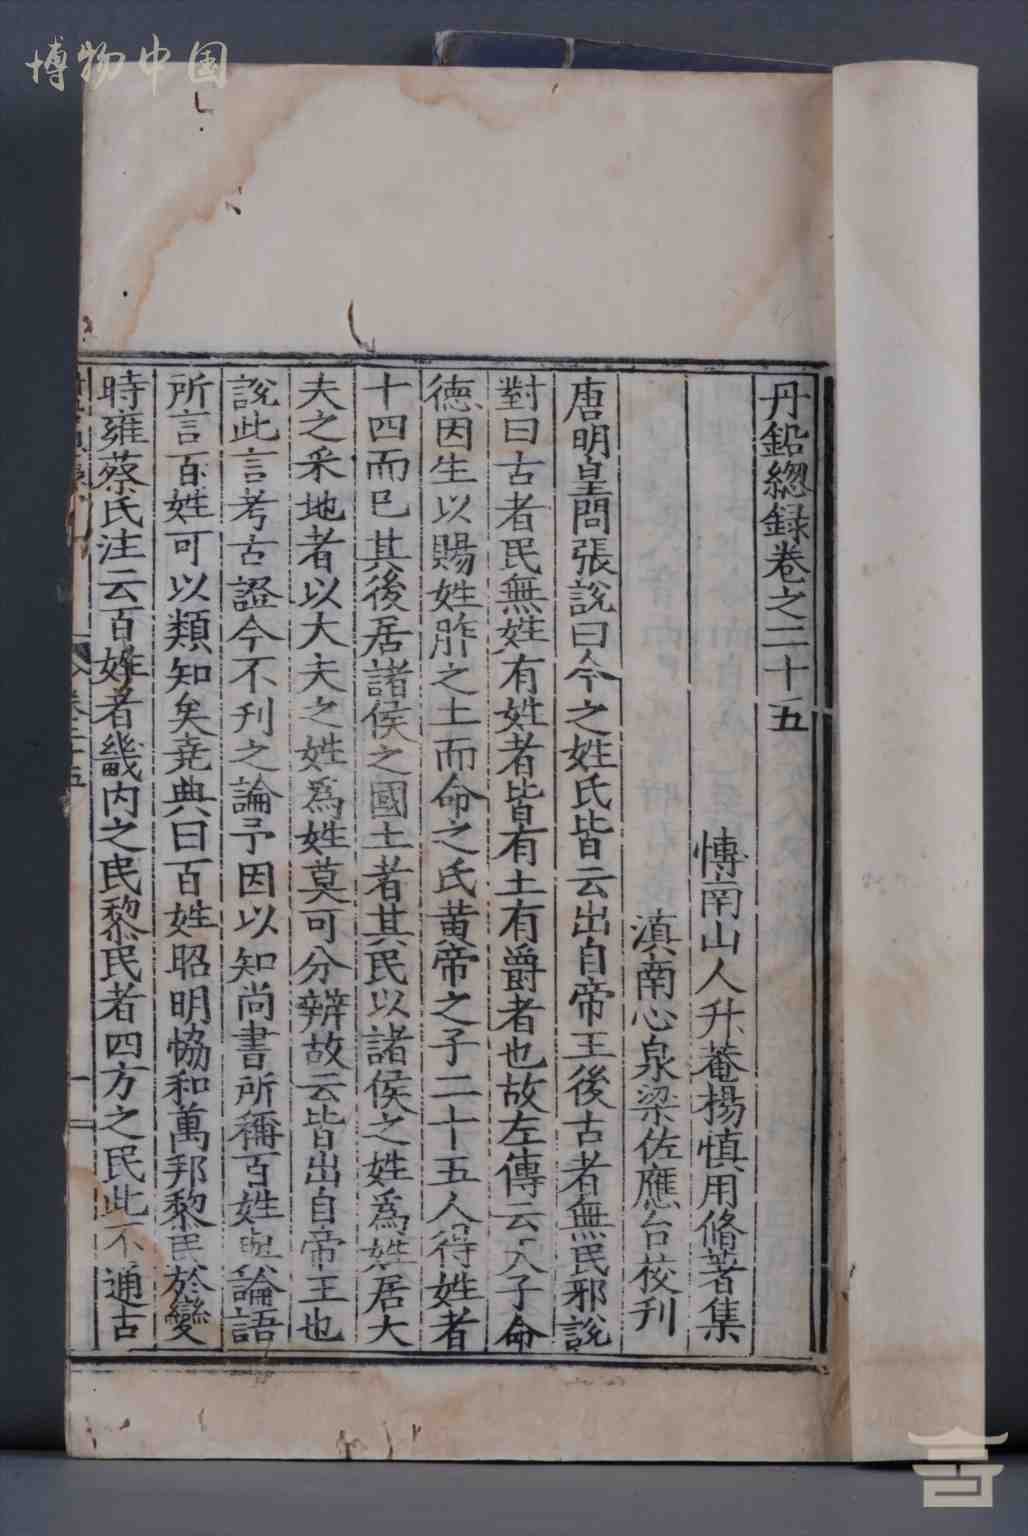 博物中国
丹鉛緫録卷之二十五
博南山人升菴楊慎用脩著集
滇南心泉梁佐應台校刋
唐明皇問張說曰今之姓氏皆云出自帝王後古者無民邪說
對曰古者民無姓有姓者皆有土有爵者也故左傳云天子命
德因生以賜姓胙之土而命之氏黄帝之子二十五人得姓者
十四而巳其後居諸侯之國土者其民以諸侯之姓爲姓居大
夫之采地者以大夫之姓爲姓莫可分辨故云皆出自帝王也
說此言考古證今不刋之論予因以知尚書所稱百姓與論語
所言百姓可以類知矣尭典曰百姓昭明恊和萬邦黎民於變
時雍蔡氏注云百姓者畿内之民黎民者四方之民此不通古